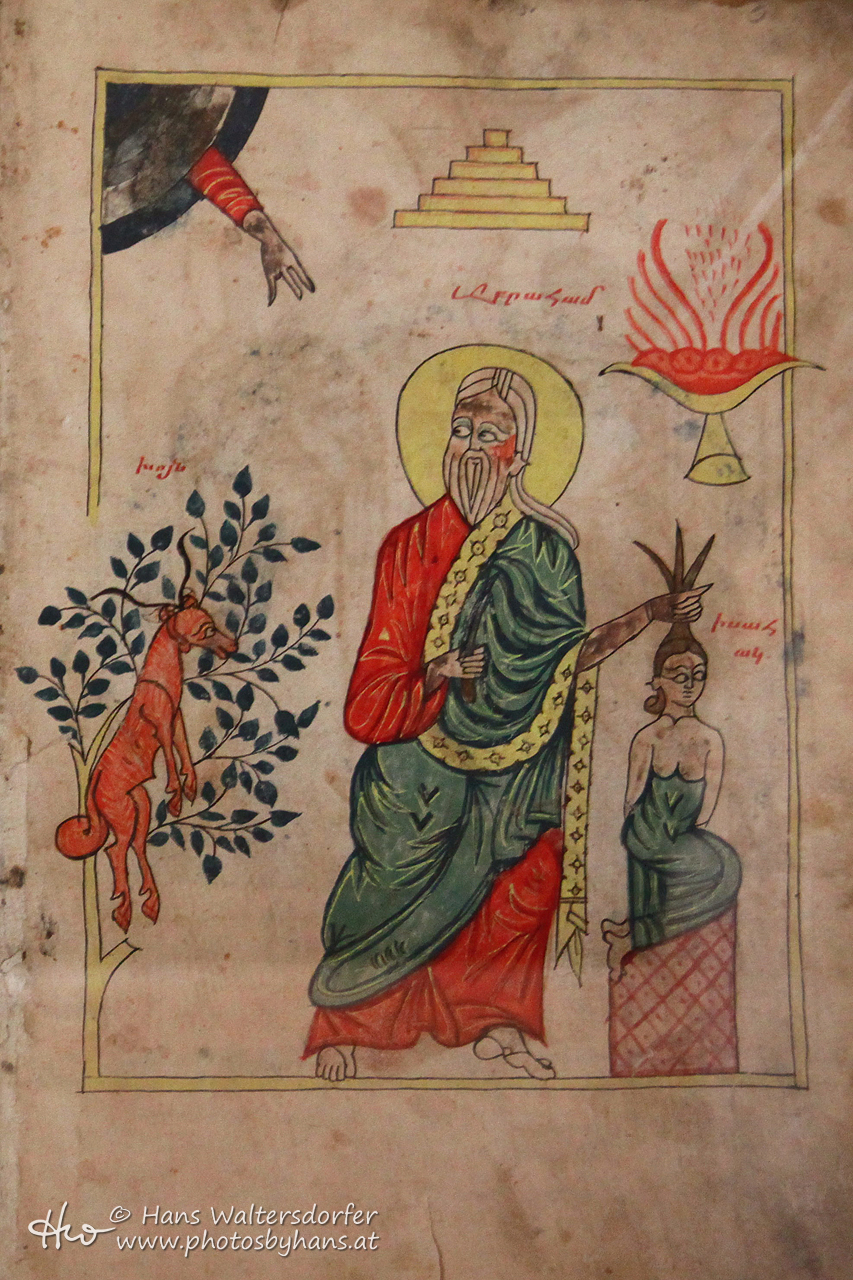 Աբրահամ
խոյն
իսահ
ակ.
© Hans Waltersdorfer
www.photosbyhans.at